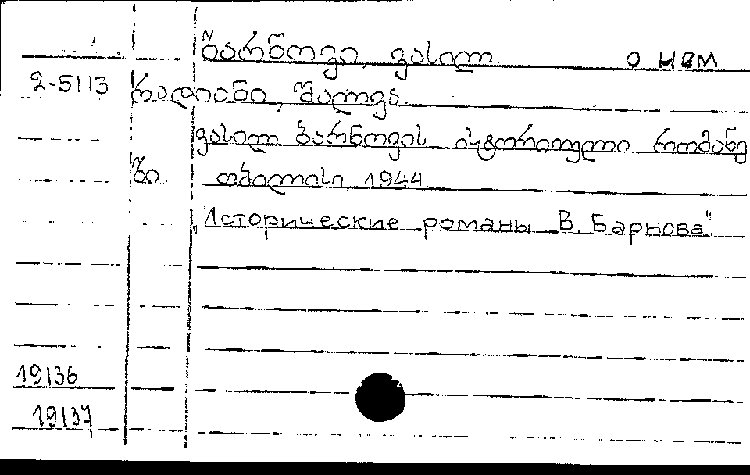 ბარნოვი, ვასილ о нем
2-5113 რადიანი, შალვა.
ვასილ ბარნოვის ისტორიული რომანე
ბი. თბილისი, 1944
"Исторические романы В. Барнова"
19136
19137